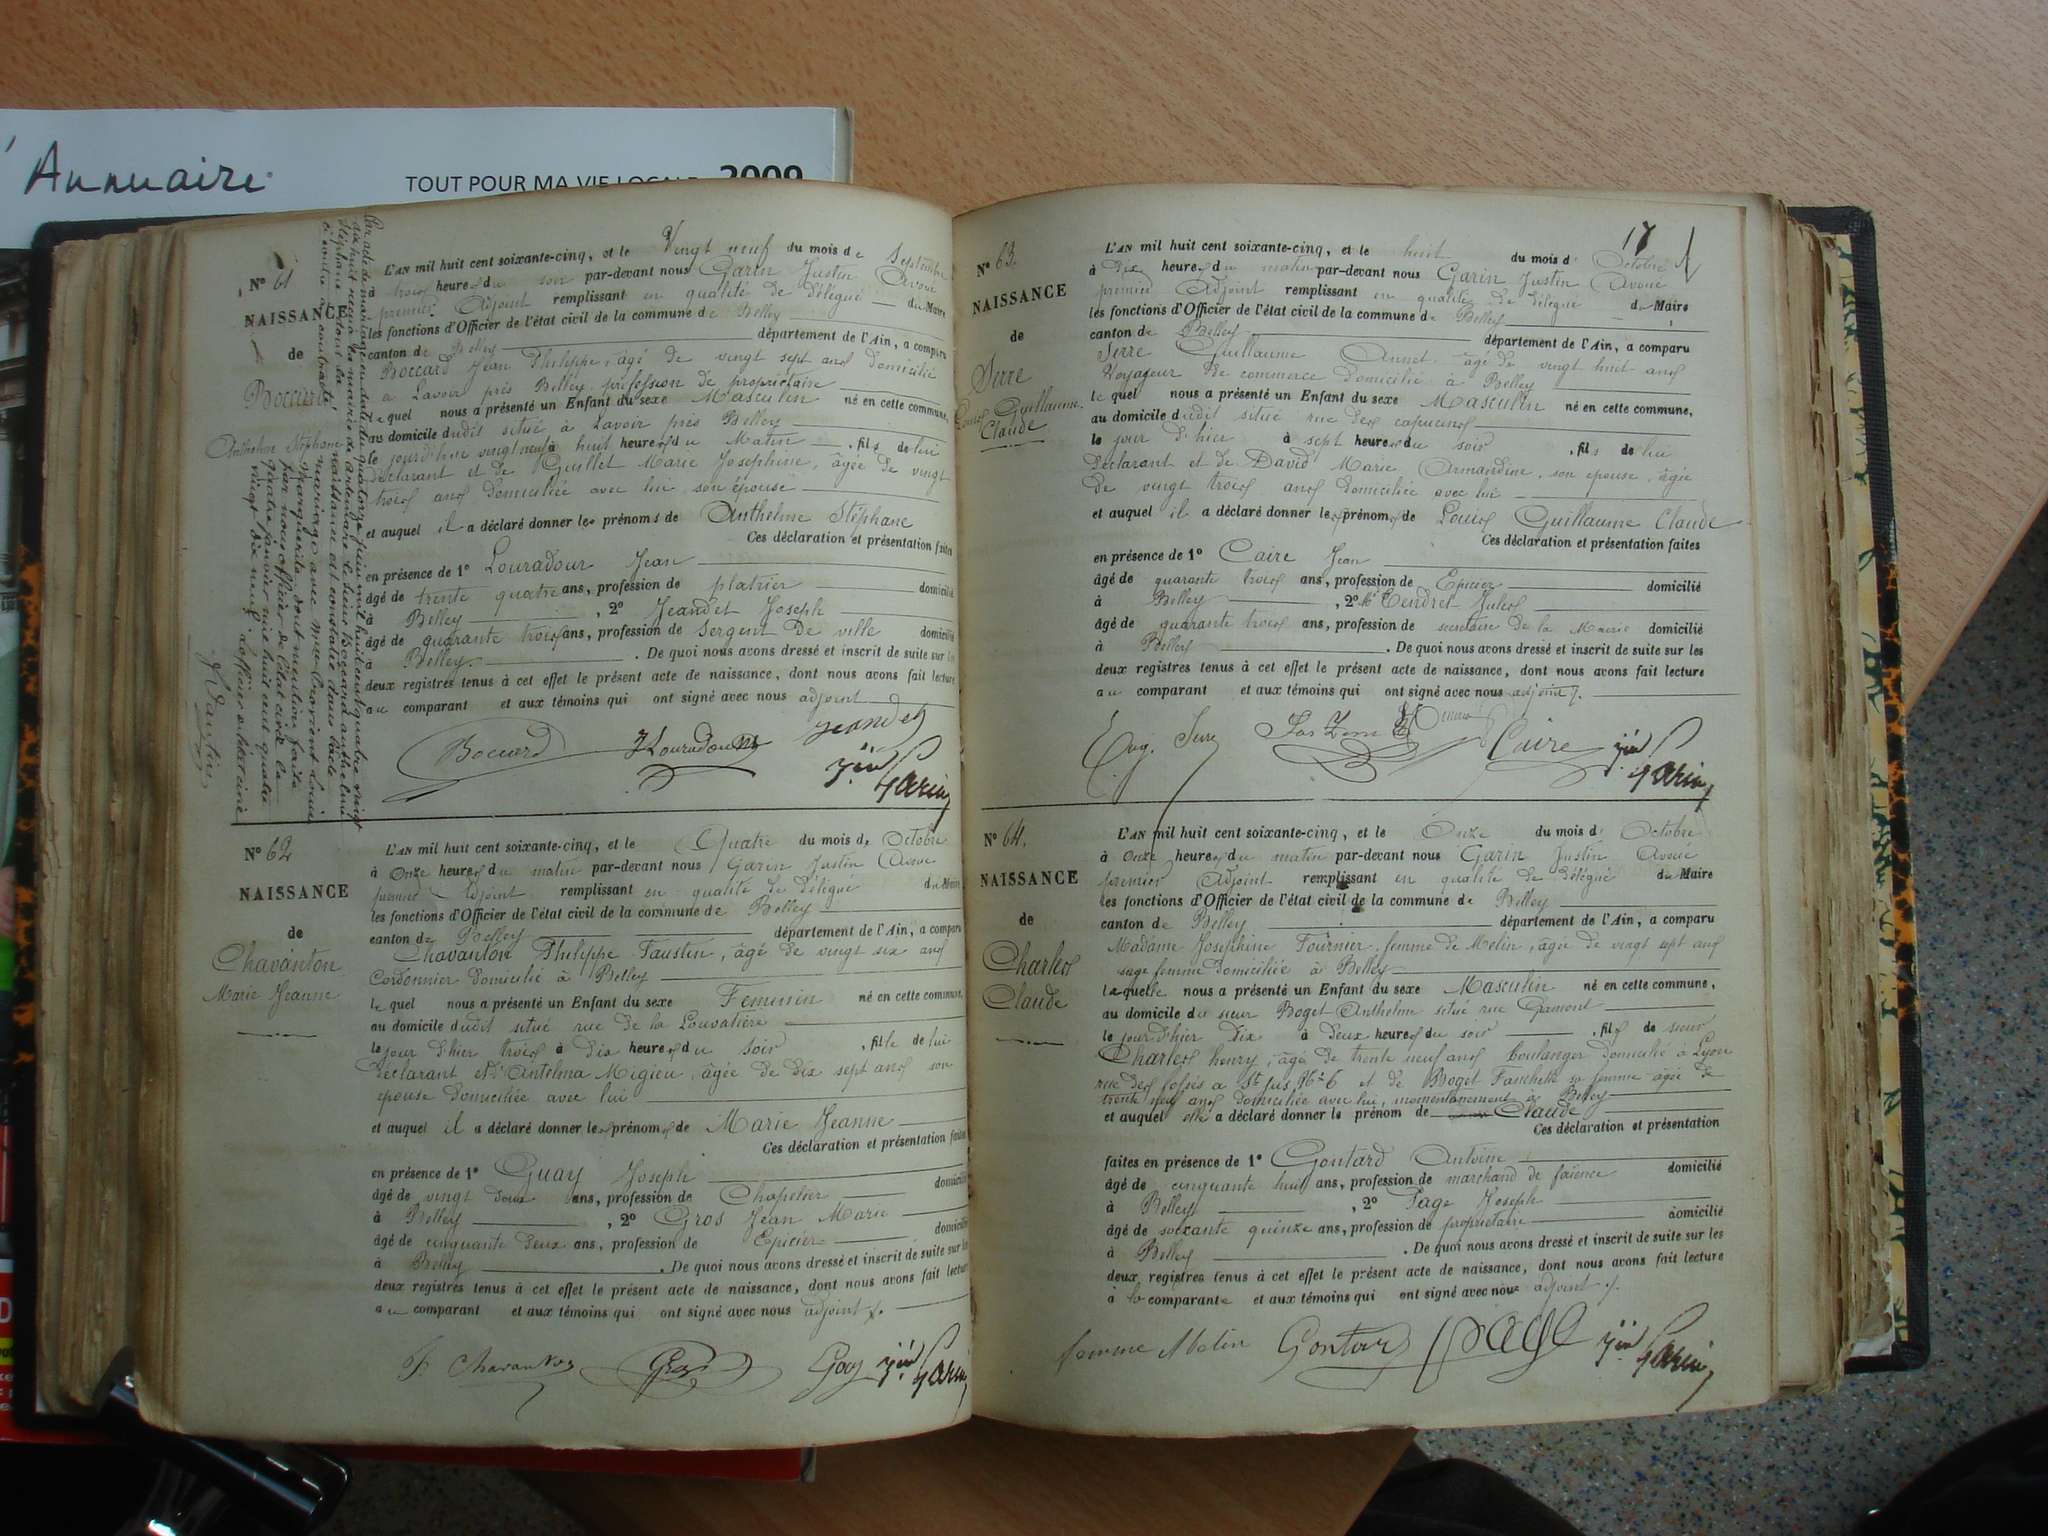 Annuaire
TOUT POUR MA VIE LOCALE 2009
N° 61
NAISSANCE
de
Boccard
Anthelme Stéphane
L'AN mil huit cent soixante-cinq, et le Vingt neuf du mois de Septembre
à trois heures du soir par-devant nous Garin Justin Avoué
premier Adjoint remplissant en qualité de délégué du Maire
les fonctions d'Officier de l'état civil de la commune de Belley
canton de Belley département de l'Ain, a comparu
Boccard Jean Philippe, âgé de vingt sept ans domicilié
à Lavoir près Belley profession de propriétaire
le quel nous a présenté un Enfant du sexe Masculin né en cette commune,
au domicile dudit situé à Lavoir près Belley
le jourd'hui vingt neuf à huit heures du Matin, fils de lui
déclarant et de Guillet Marie Josephine, âgée de vingt
trois ans domiciliée avec lui son épouse
et auquel il a déclaré donner les prénoms de Anthelme Stéphane
Ces déclaration et présentation faites
en présence de 1° Louradour Jean
âgé de trente quatre ans, profession de platrier domicilié
à Belley, 2° Jeandet Joseph
âgé de quarante trois ans, profession de Sergent de ville domicilié
à Belley. De quoi nous avons dressé et inscrit de suite sur les
deux registres tenus à cet effet le présent acte de naissance, dont nous avons fait lecture
au comparant et aux témoins qui ont signé avec nous adjoint
Boccard J Louradour Jeandet
Jin Garin
Par acte de mariage en date du quatorze juin mil huit cent quatre vingt
dix huit reçu à la mairie de le sieur Boccard Anthelme
Stéphane dont la naissance est constatée dans l'acte
ci contre a contracté mariage avec Mlle Louise
Marguerite dont mention faite
par nous officier de l'état civil le
quatre janvier mil huit cent quatre
vingt dix neuf. L'officier de l'état civil
N° 62
NAISSANCE
de
Chavanton
Marie Jeanne
L'AN mil huit cent soixante-cinq, et le Quatre du mois de Octobre
à Onze heures du matin par-devant nous Garin Justin Avoué
premier Adjoint remplissant en qualité de délégué du Maire
les fonctions d'Officier de l'état civil de la commune de Belley
canton de Belley département de l'Ain, a comparu
Chavanton Philippe Faustin, âgé de vingt six ans
Cordonnier domicilié à Belley
le quel nous a présenté un Enfant du sexe Feminin né en cette commune,
au domicile dudit situé rue de la Louvatière
le jour d'hier trois à dix heures du soir, fille de lui
déclarant et d'Antelma Migieu, âgée de dix sept ans son
épouse domiciliée avec lui
et auquel il a déclaré donner les prénoms de Marie Jeanne
Ces déclaration et présentation faites
en présence de 1° Guay Joseph
âgé de vingt deux ans, profession de Chapelier domicilié
à Belley, 2° Gros Jean Marie
âgé de cinquante deux ans, profession de Epicier domicilié
à Belley. De quoi nous avons dressé et inscrit de suite sur les
deux registres tenus à cet effet le présent acte de naissance, dont nous avons fait lecture
au comparant et aux témoins qui ont signé avec nous adjoint
Gros Jin Garin
17
N° 63.
NAISSANCE
de
Serre
Louis Guillaume
Claude
L'AN mil huit cent soixante-cinq, et le huit du mois d' Octobre
à dix heures du matin par-devant nous Garin Justin Avoué
premier Adjoint remplissant en qualité de délégué du Maire
les fonctions d'Officier de l'état civil de la commune de Belley
canton de Belley département de l'Ain, a comparu
Serre Guillaume Annet âgé de vingt huit ans
Voyageur de commerce domicilié à Belley
le quel nous a présenté un Enfant du sexe Masculin né en cette commune,
au domicile dudit situé rue des capucins
le jour d'hier à sept heures du soir, fils de lui
déclarant et de David Marie Armandine, son épouse, âgée
de vingt trois ans domiciliée avec lui
et auquel il a déclaré donner les prénoms de Louis Guillaume Claude
Ces déclaration et présentation faites
en présence de 1° Caire Jean
âgé de quarante trois ans, profession de Epicier domicilié
à Belley, 2° Mr Tendret Jules
âgé de quarante trois ans, profession de secrétaire de la Mairie domicilié
à Belley. De quoi nous avons dressé et inscrit de suite sur les
deux registres tenus à cet effet le présent acte de naissance, dont nous avons fait lecture
au comparant et aux témoins qui ont signé avec nous adjoint
Serre Caire Jin Garin
N° 64.
NAISSANCE
de
Charles
Claude
L'AN mil huit cent soixante-cinq, et le Onze du mois d' Octobre
à Onze heures du matin par-devant nous Garin Justin Avoué
premier Adjoint remplissant en qualité de délégué du Maire
les fonctions d'Officier de l'état civil de la commune de Belley
canton de Belley département de l'Ain, a comparu
Madame Josephine Fournier femme de Melin, âgée de vingt sept ans
sage femme domiciliée à Belley
laquelle nous a présenté un Enfant du sexe Masculin né en cette commune,
au domicile du sieur Boget Anthelme situé rue
le jour d'hier dix à deux heures du soir, fils de sieur
Charles henry, âgé de trente neuf ans boulanger domicilié à Lyon
rue des fossés et de Boget Fanchette sa femme âgée de
trente neuf ans domiciliée avec lui, momentanément à Belley
et auquel elle a déclaré donner le prénom de Claude
Ces déclaration et présentation
faites en présence de 1° Gontard Antoine
âgé de cinquante huit ans, profession de marchand de faïence domicilié
à Belley, 2° Page Joseph
âgé de soixante quinze ans, profession de propriétaire domicilié
à Belley. De quoi nous avons dressé et inscrit de suite sur les
deux registres tenus à cet effet le présent acte de naissance, dont nous avons fait lecture
à la comparante et aux témoins qui ont signé avec nous adjoint
femme Melin Gontard Page Jin Garin